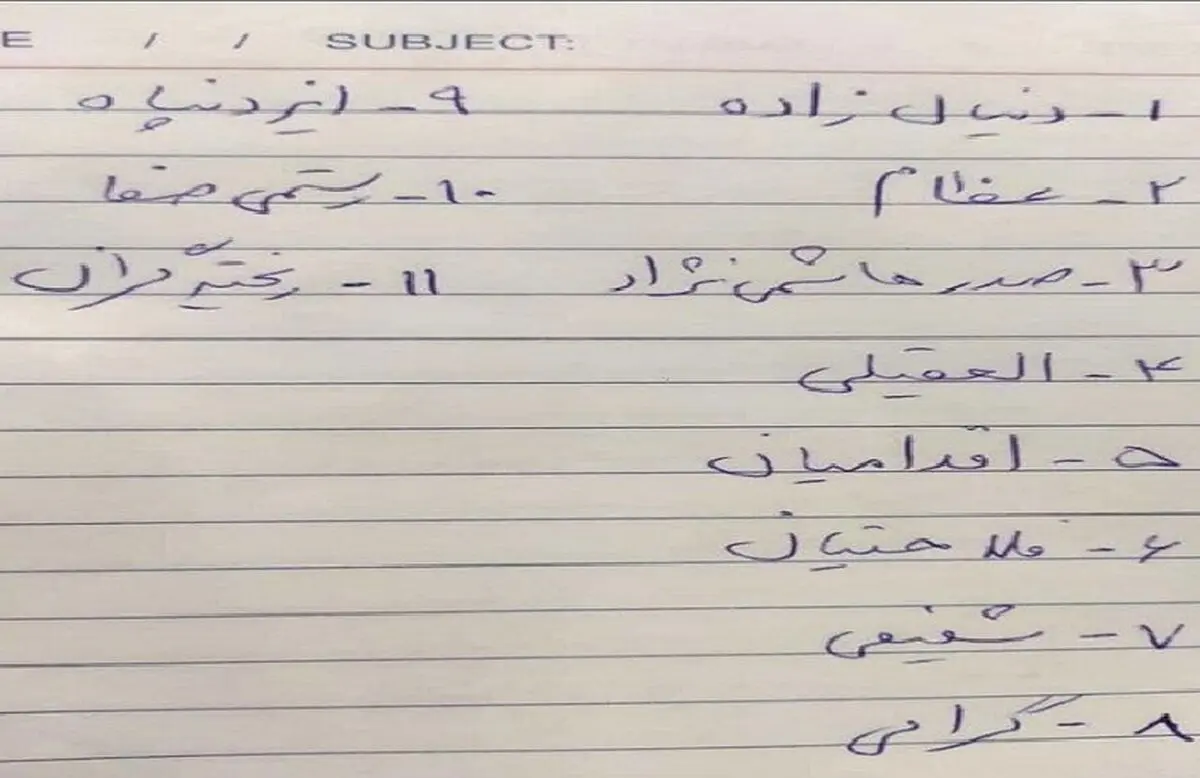 E / / SUBJECT:
۱- دنیال زاده
۲- عظام
۳- صدر هاشمی نژاد
۴- العقیلی
۵- اقدامیان
۶- فلاحتیان
۷- شفیعی
۸- گرامی
۹- ایزدپناه
۱۰- رستمی صفا
۱۱- ریخته گران